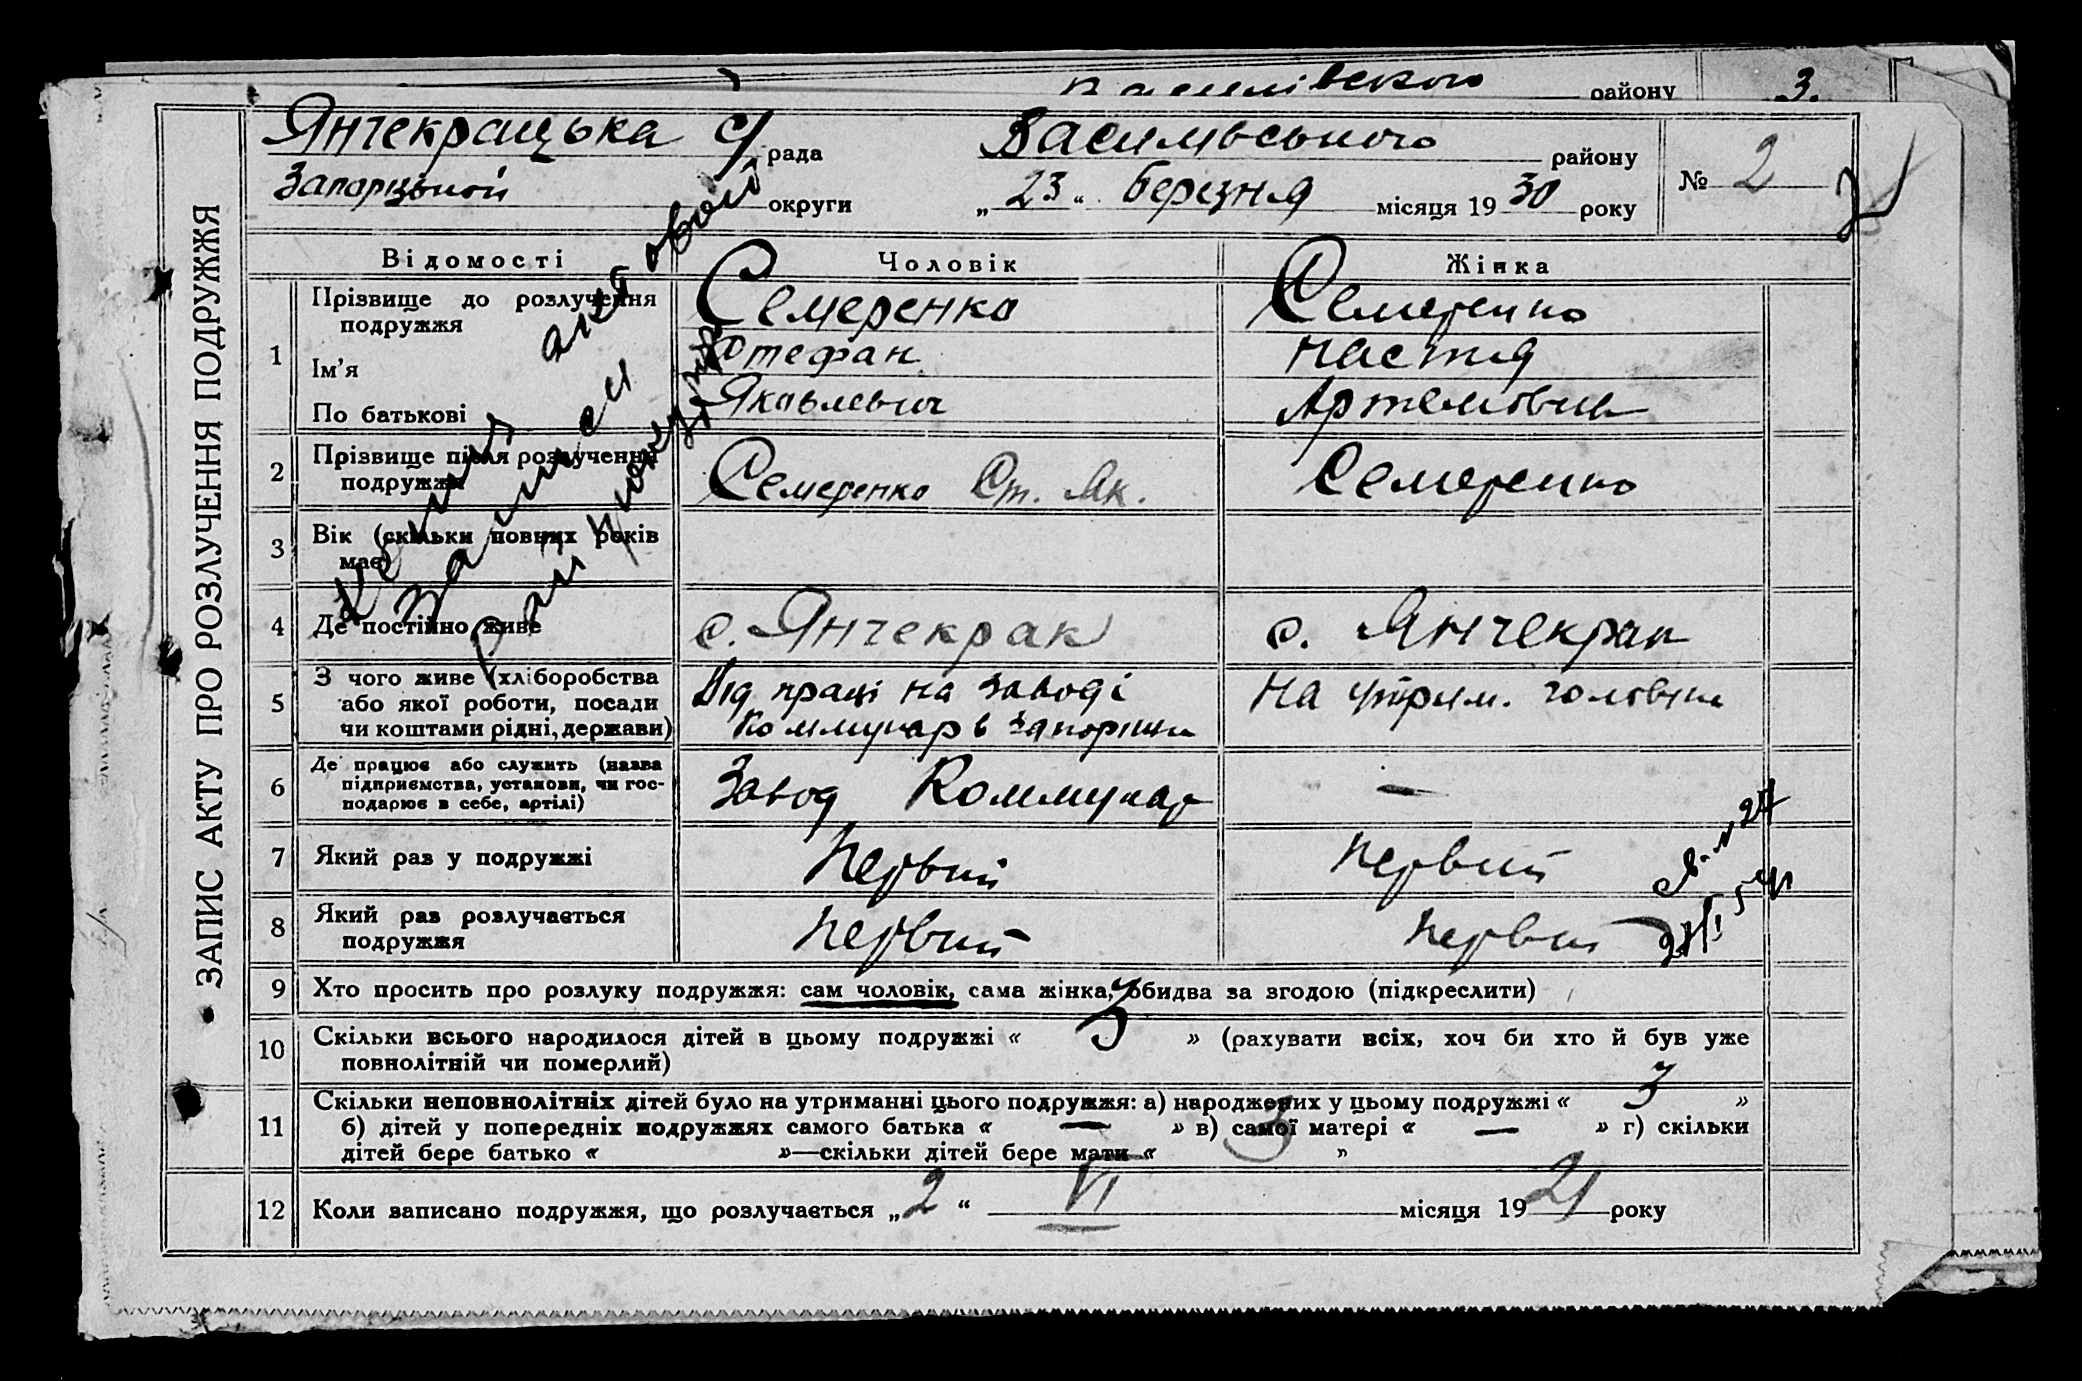 району 3.
Янчекрацька с/рада Василівського району № 2
Запорізької округи „23“ березня місяця 1930 року
ЗАПИС АКТУ ПРО РОЗЛУЧЕННЯ ПОДРУЖЖЯ
Відомості Чоловік Жінка
1 Прізвище до розлучення подружжя Семеренко Семеренко
Ім’я Стефан Настя
По батькові Яковлевич Артемовна
2 Прізвище після розлучення подружжя Семеренко Ст. Як. Семеренко
3 Вік (скільки повних років має)
4 Де постійно живе с. Янчекрак с. Янчекрак
5 З чого живе (хліборобства або якої роботи, посади чи коштами рідні, держави) Від праці на заводі Коммунар в Запоріжжі На утрим. чоловіка
6 Де працює або служить (назва підприємства, установи, чи господарює в себе, артілі) Завод Коммунар —
7 Який раз у подружжі Первий Первий
8 Який раз розлучається подружжя Первий Первий
9 Хто просить про розлуку подружжя: сам чоловік, сама жінка, обидва за згодою (підкреслити)
10 Скільки всього народилося дітей в цьому подружжі « 3 » (рахувати всіх, хоч би хто й був уже
повнолітній чи померлий)
11 Скільки неповнолітніх дітей було на утриманні цього подружжя: а) народжених у цьому подружжі « 3 »
б) дітей у попередніх подружжях самого батька « — » в) самої матері « — » г) скільки
дітей бере батько « »—скільки дітей бере мати « 3 »
12 Коли записано подружжя, що розлучається „2“ VI місяця 1921 року